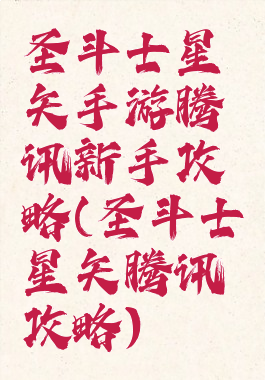 圣斗士星
矢手游腾
讯新手攻
略(圣斗士
星矢腾讯
攻略)